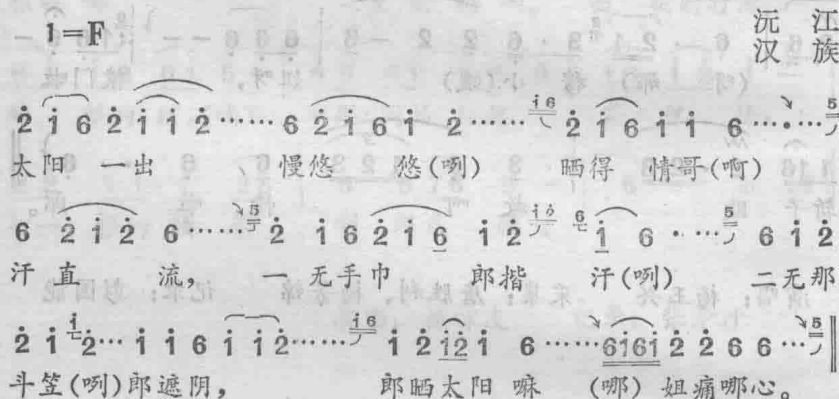 1=F
沅江
汉族
2 1 6 2 1 1 2…… 6 2 1 6 1 2…… 1 6 2 1 6 1 1 6…… 5
太阳 一出 慢悠 悠(咧) 晒得 情哥(啊)
6 2 1 2 6…… 5 2 1 6 2 1 6 1 2 1 6 6 1 6…… 5 6 1 2
汗直 流, 一无手巾 郎揩 汗(咧) 二无那
2 1 1 2… 1 1 6 1 1 2…… 1 6 1 2 1 2 1 6…… 6 1 6 1 2 2 6 6… 5
斗笠(咧)郎遮阴, 郎晒太阳 嘛 (哪) 姐痛哪心。